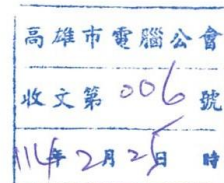 高雄市電腦公會
收文第006號
114年2月25日 時